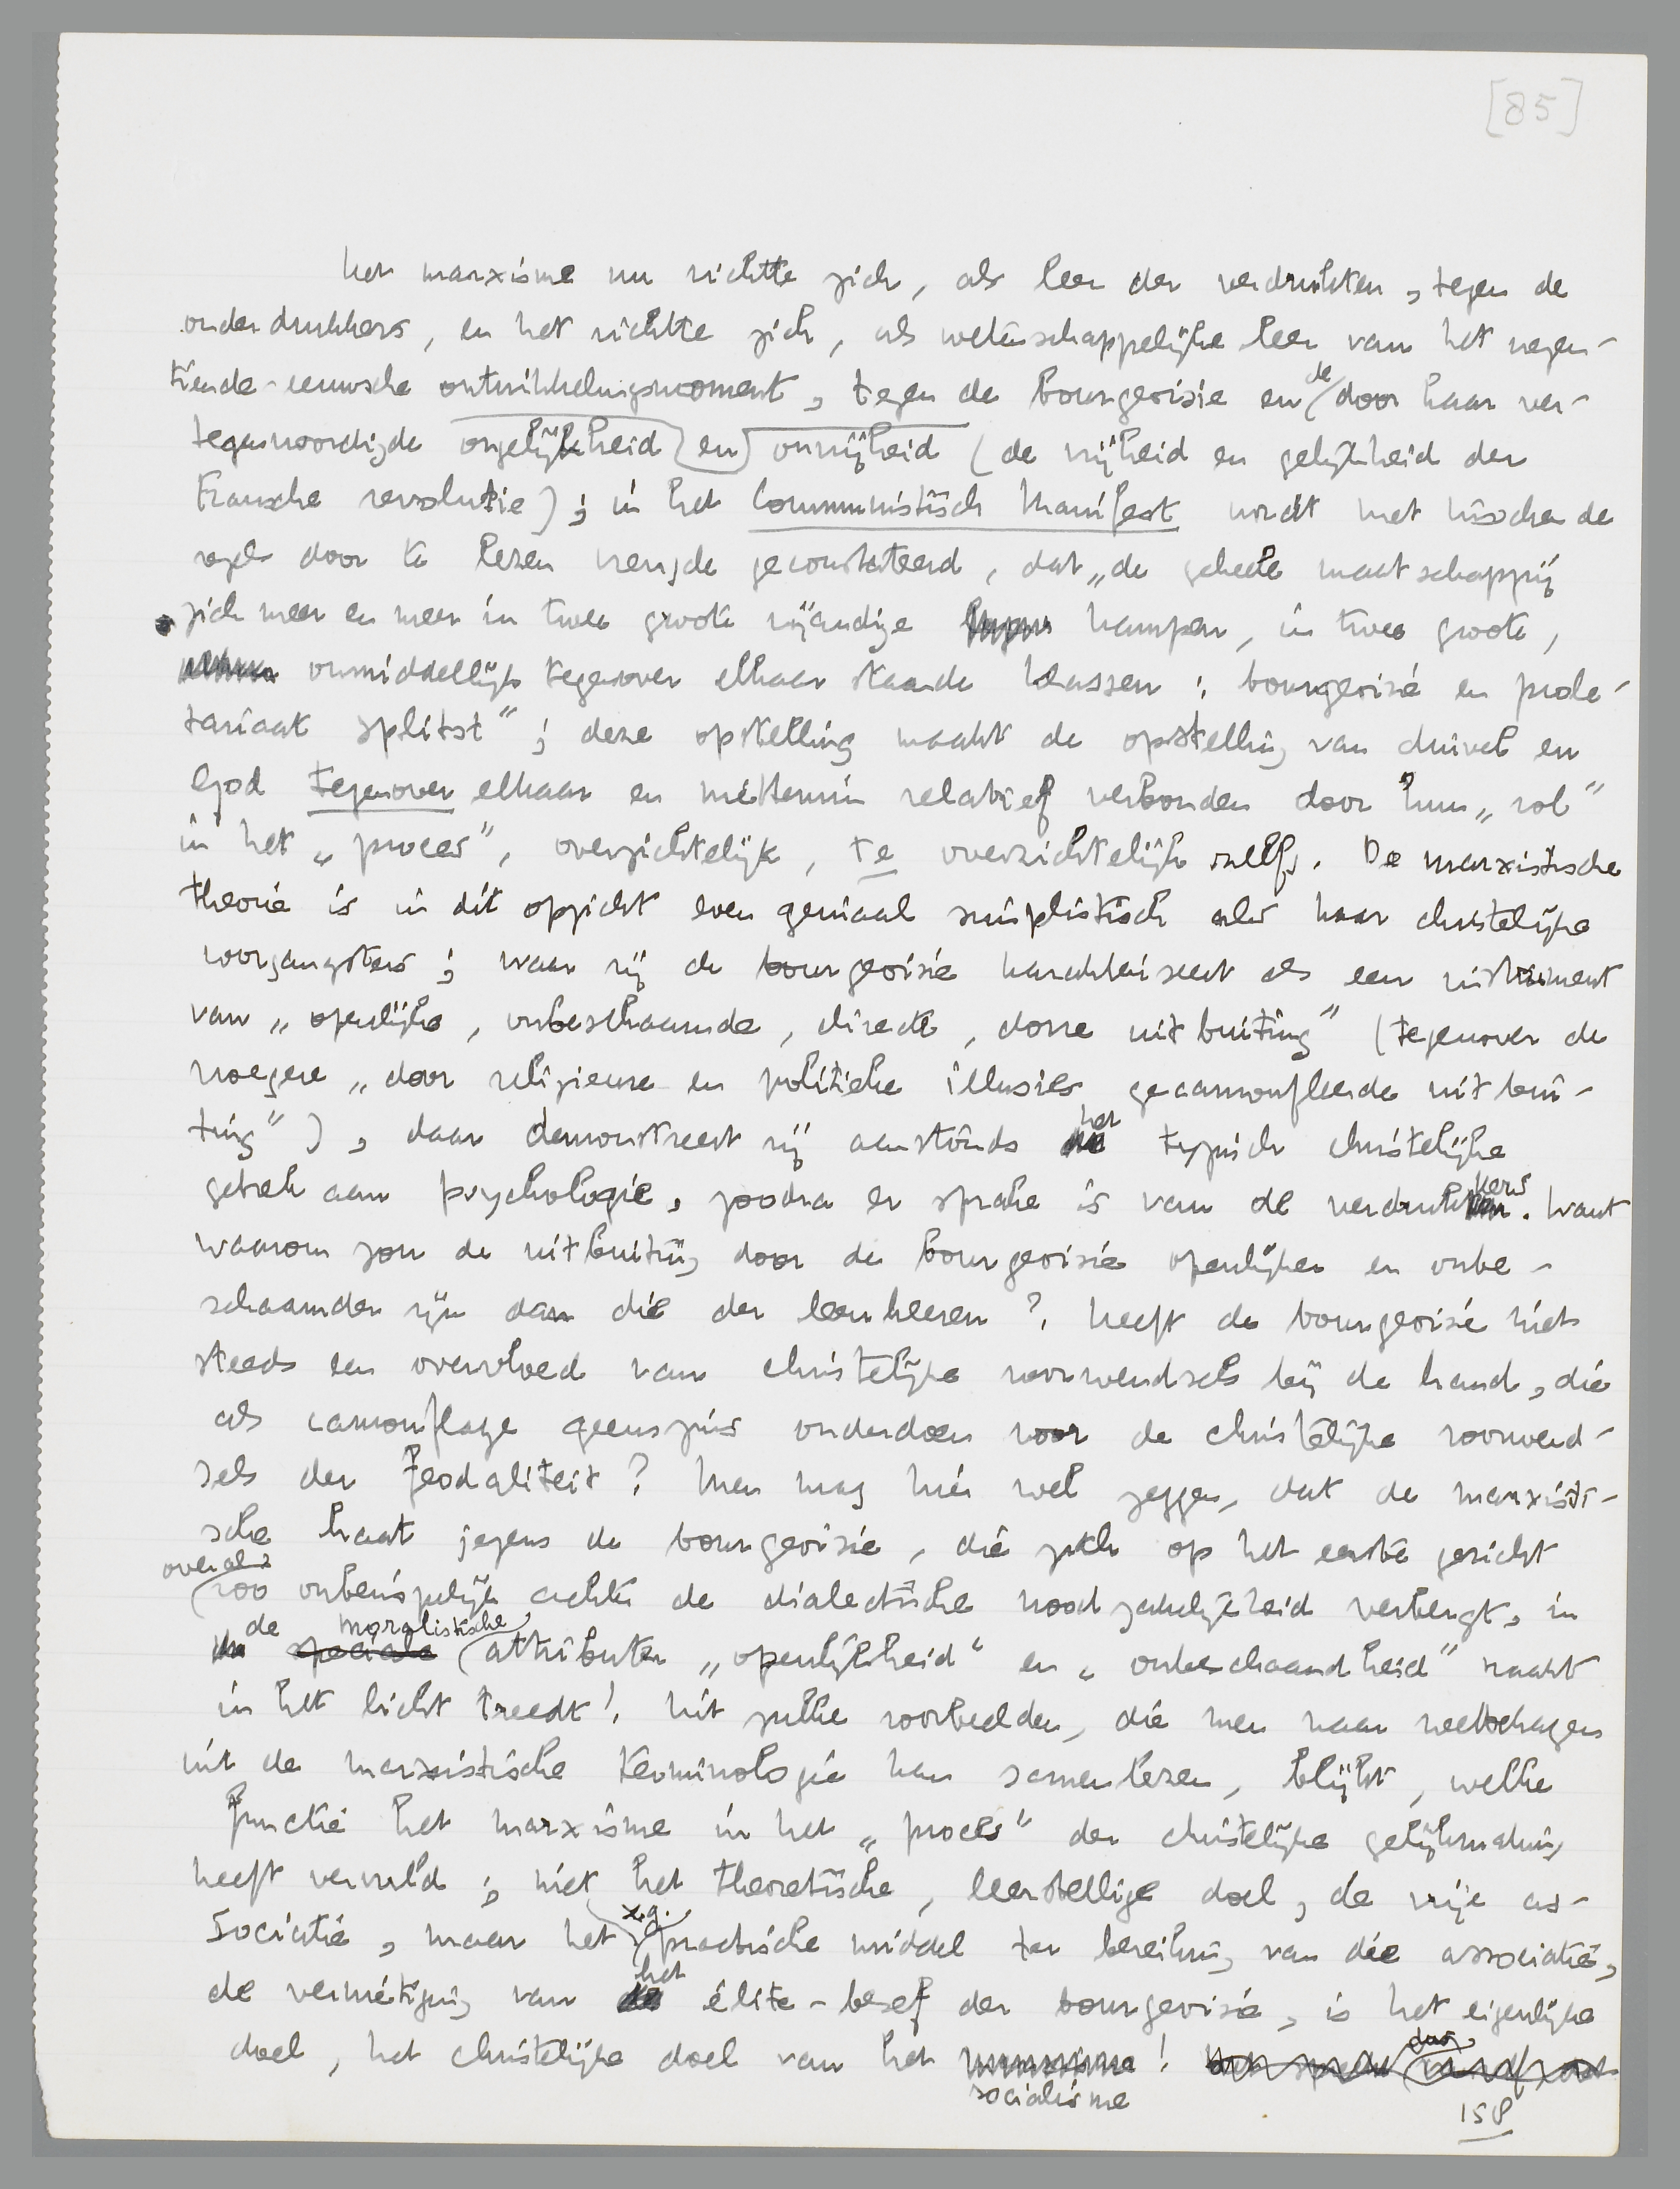 [85]
Het marxisme nu richtte zich, als leer der verdrukten, tegen de
onderdrukkers, en het richtte zich, als wetenschappelijke leer van het negen-
tiende-eeuwsche ontwikkelingsmoment, tegen de bourgeoisie en de door haar ver-
tegenwoordigde ongelijkheid en onvrijheid (de vrijheid en gelijkheid der
Fransche revolutie); in het Communistisch Manifest wordt met tusschen de
regels door te lezen vreugde geconstateerd, dat „de geheele maatschappij
zich meer en meer in twee groote vijandige kampen, in twee groote,
onmiddellijk tegenover elkaar staande klassen: bourgeoisie en prole-
tariaat splitst"; deze opstelling maakt de opstelling van duivel en
God tegenover elkaar en niettemin relatief verbonden door hun „rol"
in het „proces", overzichtelijk, te overzichtelijk zelfs. De marxistische
theorie is in dit opzicht even geniaal simplistisch als haar christelijke
voorgangsters; waar zij de bourgeoisie karakteriseert als een instrument
van „openlijke, onbeschaamde, directe, dorre uitbuiting" (tegenover de
vroegere „door religieuse en politieke illusies gecamoufleerde uitbui-
ting"), daar demonstreert zij aanstonds het typisch christelijke
gebrek aan psychologie, zoodra er sprake is van de verdrukkers. Want
waarom zou de uitbuiting door de bourgeoisie openlijker en onbe-
schaamder zijn dan die der leenheeren? Heeft de bourgeoisie niet
steeds een overvloed van christelijke voorwendsels bij de hand, die
als camouflage geenszins onderdoen voor de christelijke voorwend-
sels der feodaliteit? Men mag hier wel zeggen, dat de marxisti-
sche haat jegens de bourgeoisie, die zich op het eerste gezicht
overal zoo onberispelijk achter de dialectische noodzakelijkheid verbergt, in
de speciale moralistische attributen „openlijkheid" en „onbeschaamdheid" naakt
in het licht treedt! Uit zulke voorbeelden, die men naar welbehagen
uit de marxistische terminologie kan samenlezen, blijkt, welke
functie het marxisme in het „proces" der christelijke gelijkmaking
heeft vervuld; niet het theoretische, leerstellige doel, de vrije as-
sociatie, maar het z.g. practische middel ter bereiking van die associatie,
de vernietiging van het élite-besef der bourgeoisie, is het eigenlijke
doel, het christelijke doel van het marxisme socialisme!
158